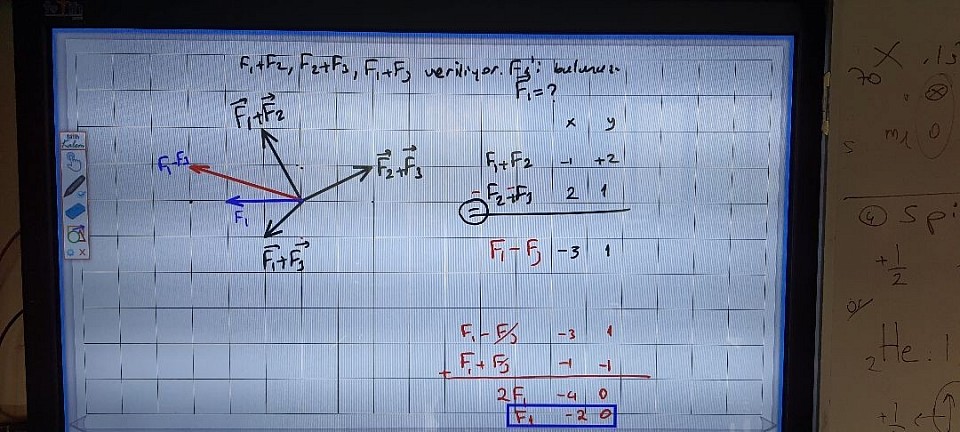 F₁+F₂, F₂+F₃, F₁+F₃ veriliyor. F₃'i bulunuz.
F⃗₁=?
F⃗₁+F⃗₂
F₁-F₃
F⃗₂+F⃗₃
F₁
F⃗₁+F⃗₃
x y
F₁+F₂ -1 +2
- F₂+F₃ 2 1
=
F₁-F₃ -3 1
F₁-F₃ -3 1
+ F₁+F₃ -1 -1
2F₁ -4 0
F₁ -2 0
Kalem
X
70
5
0
④ Spi
+1/2
₂He